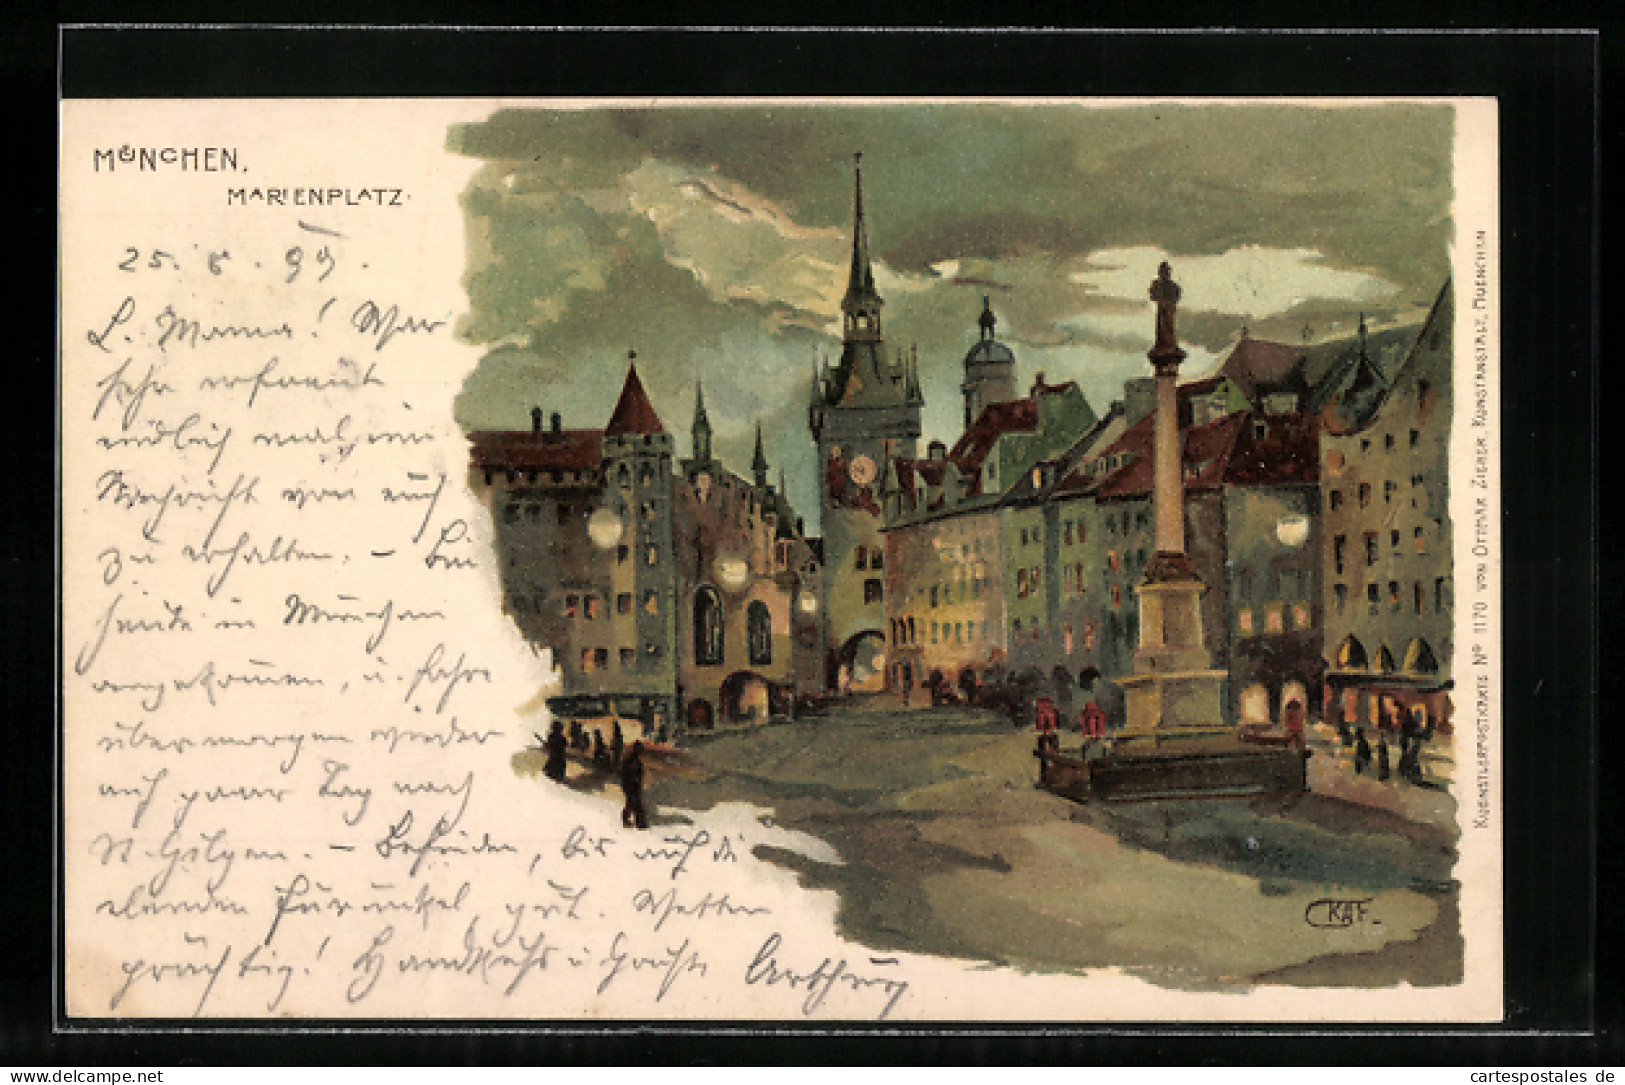 MÜNCHEN,
MARIENPLATZ.
25. 8. 99.
L. Mama! War
sehr erfreut
endlich mal, eine
Nachricht von euch
zu erhalten. – Bin
heute in München
angekommen, u. fahre
übermorgen wieder
auf paar Tag nach
St. Gilgen. – Befinden, bis auf die
elenden Furunkel, gut. Wetter
prächtig! Handkuss u. Grüße Arthur
CKAF-
KUENSTLERPOSTKARTE Nº 1170 VON OTTMAR ZIEHER, KUNSTANSTALT, MUENCHEN
cartespostales de